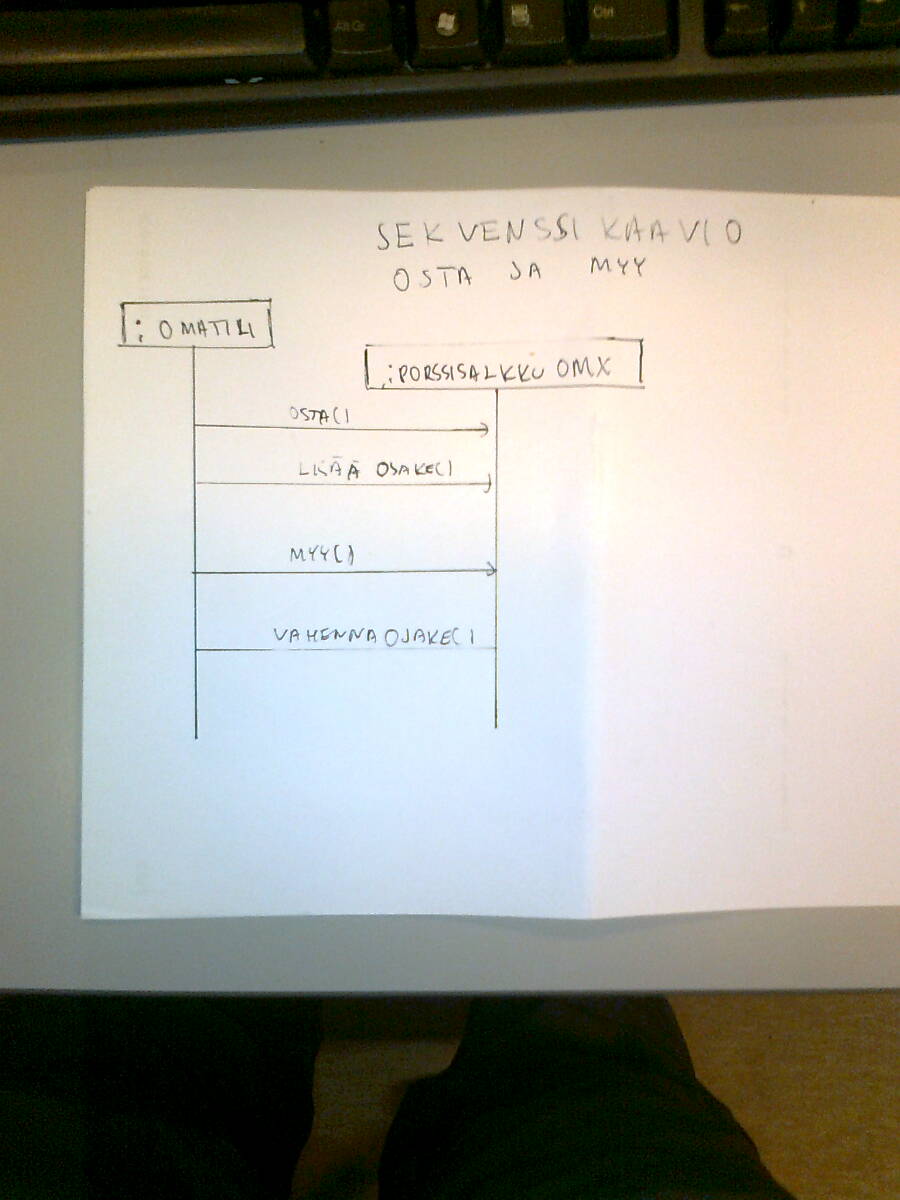 Alt Gr
Ctrl
SEKVENSSI KAAVIO
OSTA JA MYY
: OMATILI
:PORSSISALKKU OMX
OSTA()
LISÄÄ OSAKE()
MYY()
VAHENNA OSAKE()